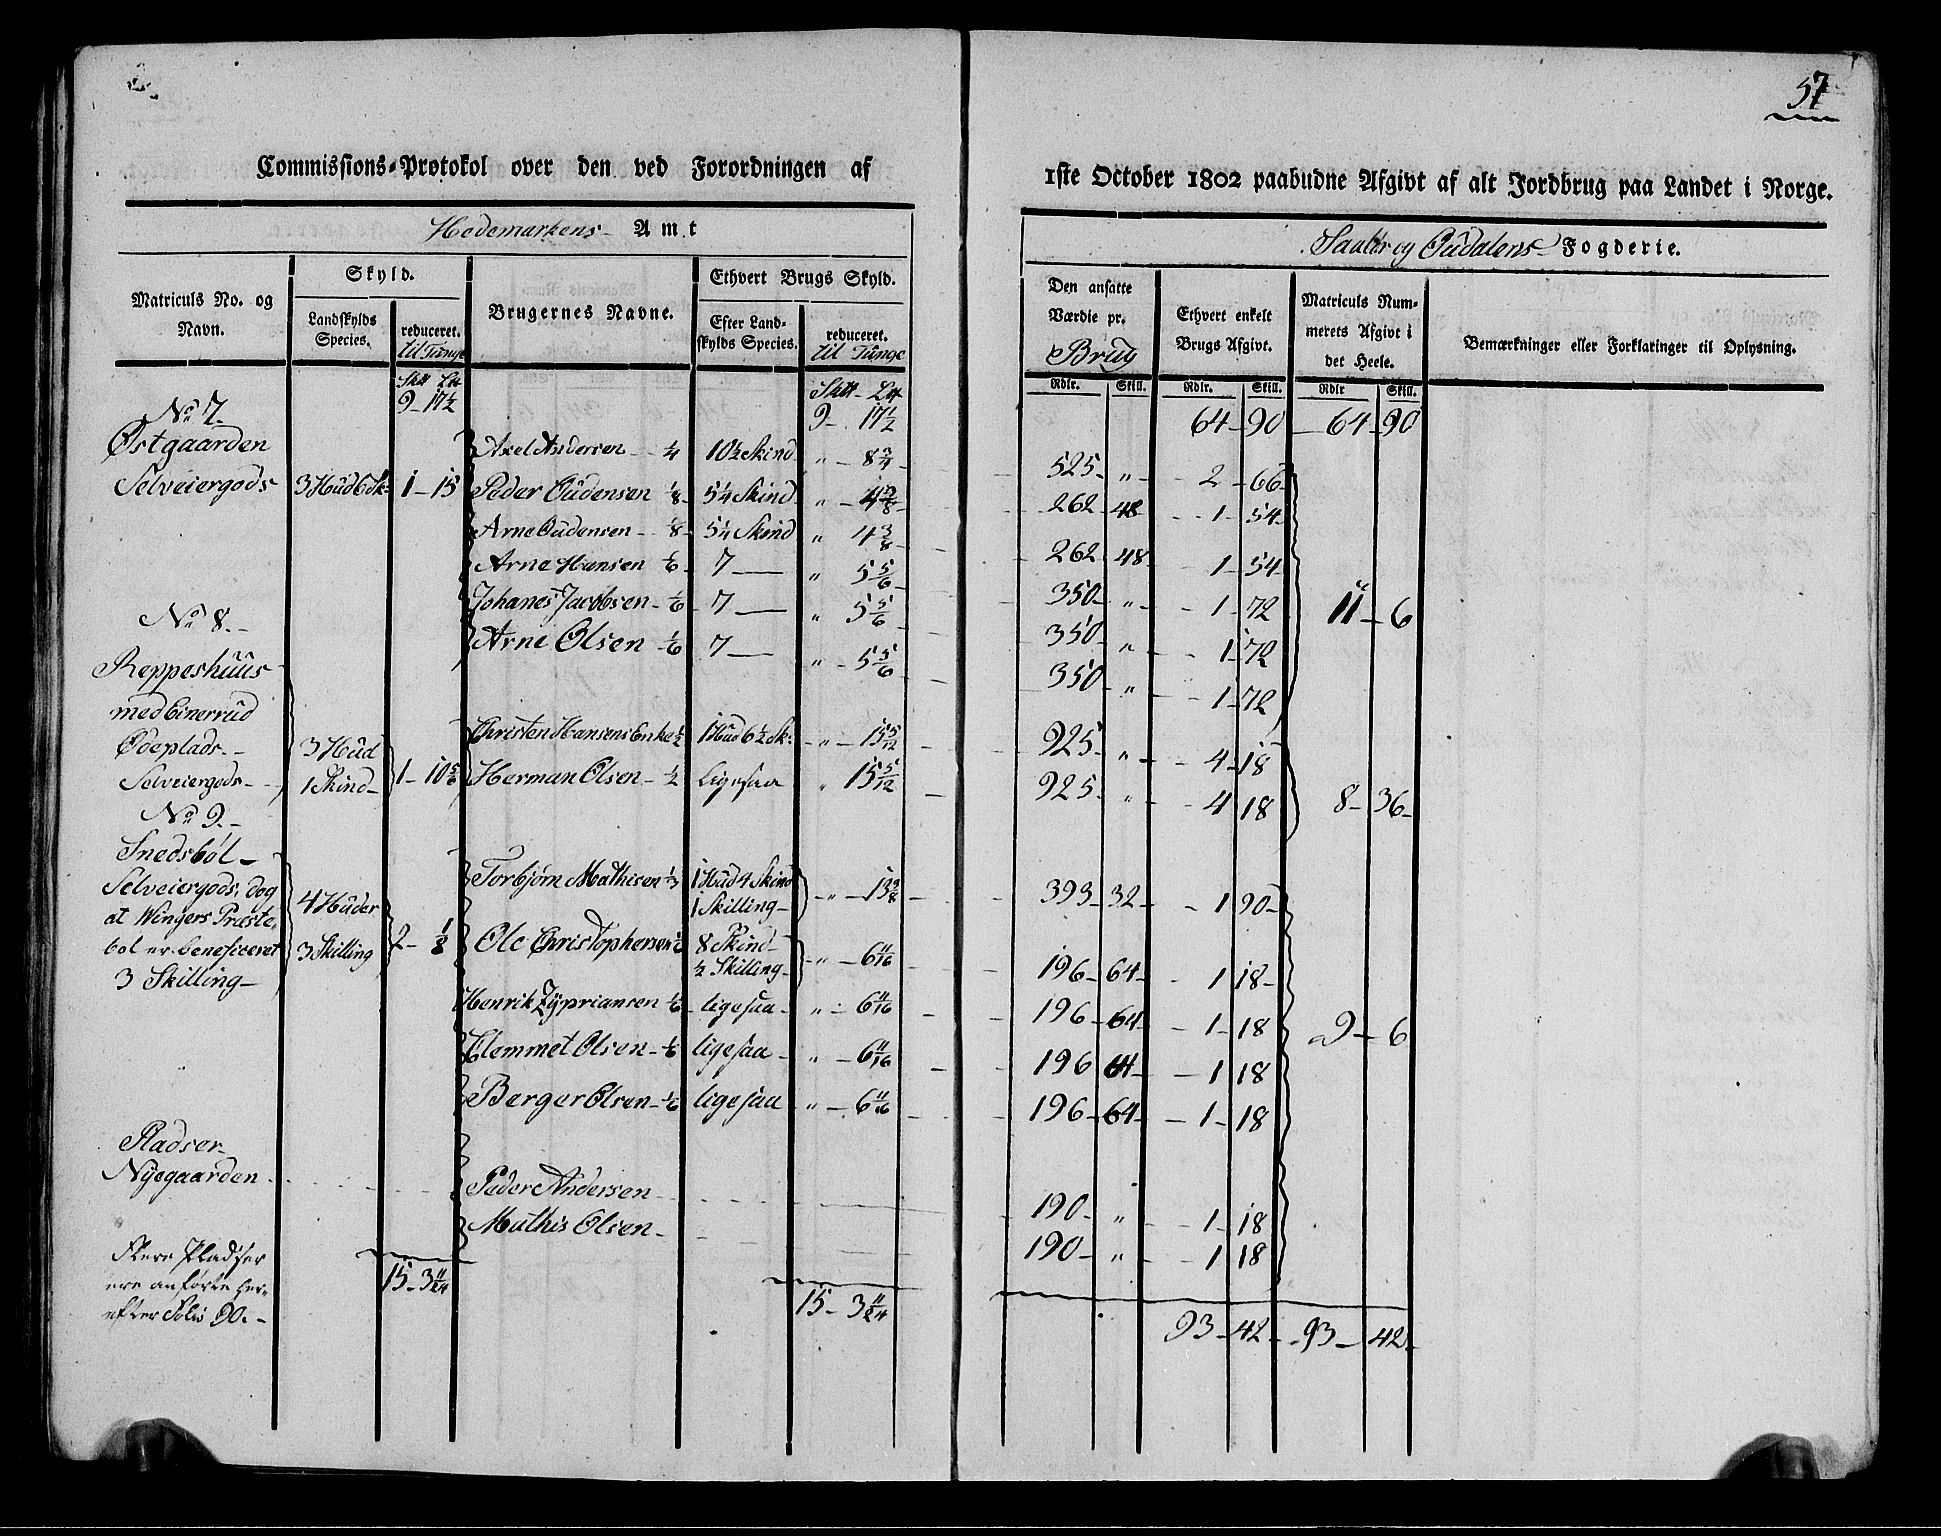 57
Commissions-Protokol over den ved Forordningen af 1ste October 1802 paabudne Afgivt af alt Jordbrug paa Landet i Norge.
Hedemarkens Amt
Soløer og Oudalens Fogderie.
Matriculs No. og Navn.
Skyld.
Landskylds Species.
reduceret.
til Tunge
Brugernes Navne.
Ethvert Brugs Skyld.
Efter Landskylds Species.
reduceret.
til Tunge
Den ansatte Værdie pr.
Brug
Rdlr. Skill.
Ethvert enkelt Brugs Afgivt.
Rdlr. Skill.
Matriculs Nummerets Afgivt i det Heele.
Rdlr Skill.
Bemærkninger eller Forklaringer til Oplysning.
9 - 17½ 9 - 17½ 64 - 90 - 64 - 90
No 7.
Østgaarden
Selveiergods 3 Hud 6 Sk: 1 - 15
Axel Andersen - ¼ 10½ Skind " - 8¾ 525 - " - 2 - 66
Peder Oudensen ⅛ 5¼ Skind " - 4⅜ 262 48 - 1 - 54
Arne Oudensen - ⅛ 5¼ Skind " 4⅜ 262 - 48 - 1 - 54
Arne Hansen ⅙ 7 — " 5⅚ 350 - " - 1 - 72
Johanes Jacobsen - ⅙ 7 — " 5⅚ 350 - " - 1 - 72
Arne Olsen - ⅙ 7 — " - 5⅚ 350 - " - 1 - 72
11 - 6
No 8. -
Reppeshuus
med Einerrud
Ødeplads. -
Selveiergods - 3 Hud 1 Skind - 1 - 10⅚
Christen Hansens Enke ½ 1 Hud 6½ Sk: - " - 15 5/12 925 - " - 4 - 18
Herman Olsen - ½ Ligesaa " 15 5/12 925 - " - 4 18
8 - 36 -
No 9. -
Snedsbøl -
Selveiergods, dog
at Wingers Præste-
bol er beneficeret
3 Skilling -
4 Huder
3 Skilling 2 - ⅛
Torbjørn Mathisen ⅓ 1 Hud 4 Skind 1 Skilling - " - 13⅜ 393 - 32 - 1 90 -
Ole Christophersen ⅙ 8 Skind - ½ Skilling - " - 6 11/16 196 - 64 - 1 18 -
Henrik Zÿpriansen ⅙ ligesaa - " - 6 11/16 196 - 64 - 1 - 18
Clemmet Olsen - ⅙ ligesaa - " - 6 11/16 196 64 - 1 18
Berger Olsen - ⅙ ligesaa " - 6 11/16 196 - 64 - 1 - 18
9 - 6
Pladser -
Nyegaarden -
Peder Andersen 190 - " - 1 - 18
Mathis Olsen - 190 - " - 1 18
Flere Pladser
ere anførte her-
efter Folio 90. -
15 - 3 11/24 15 - 3 11/24 93 - 42 - 93 - 42 -